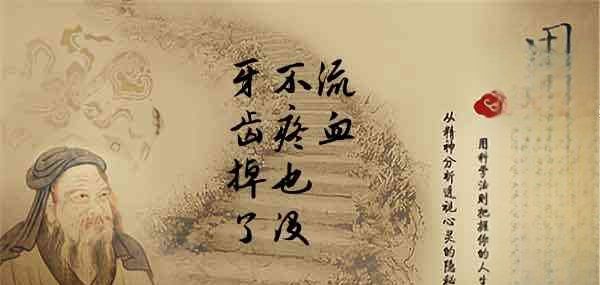 牙齿掉了
不疼也没
流血
用科学法则把握你的人生
从精神分析透视心灵的隐秘